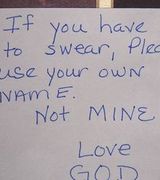 If you have
to swear, Plea
use your own
NAME.
Not MINE
Love
GOD